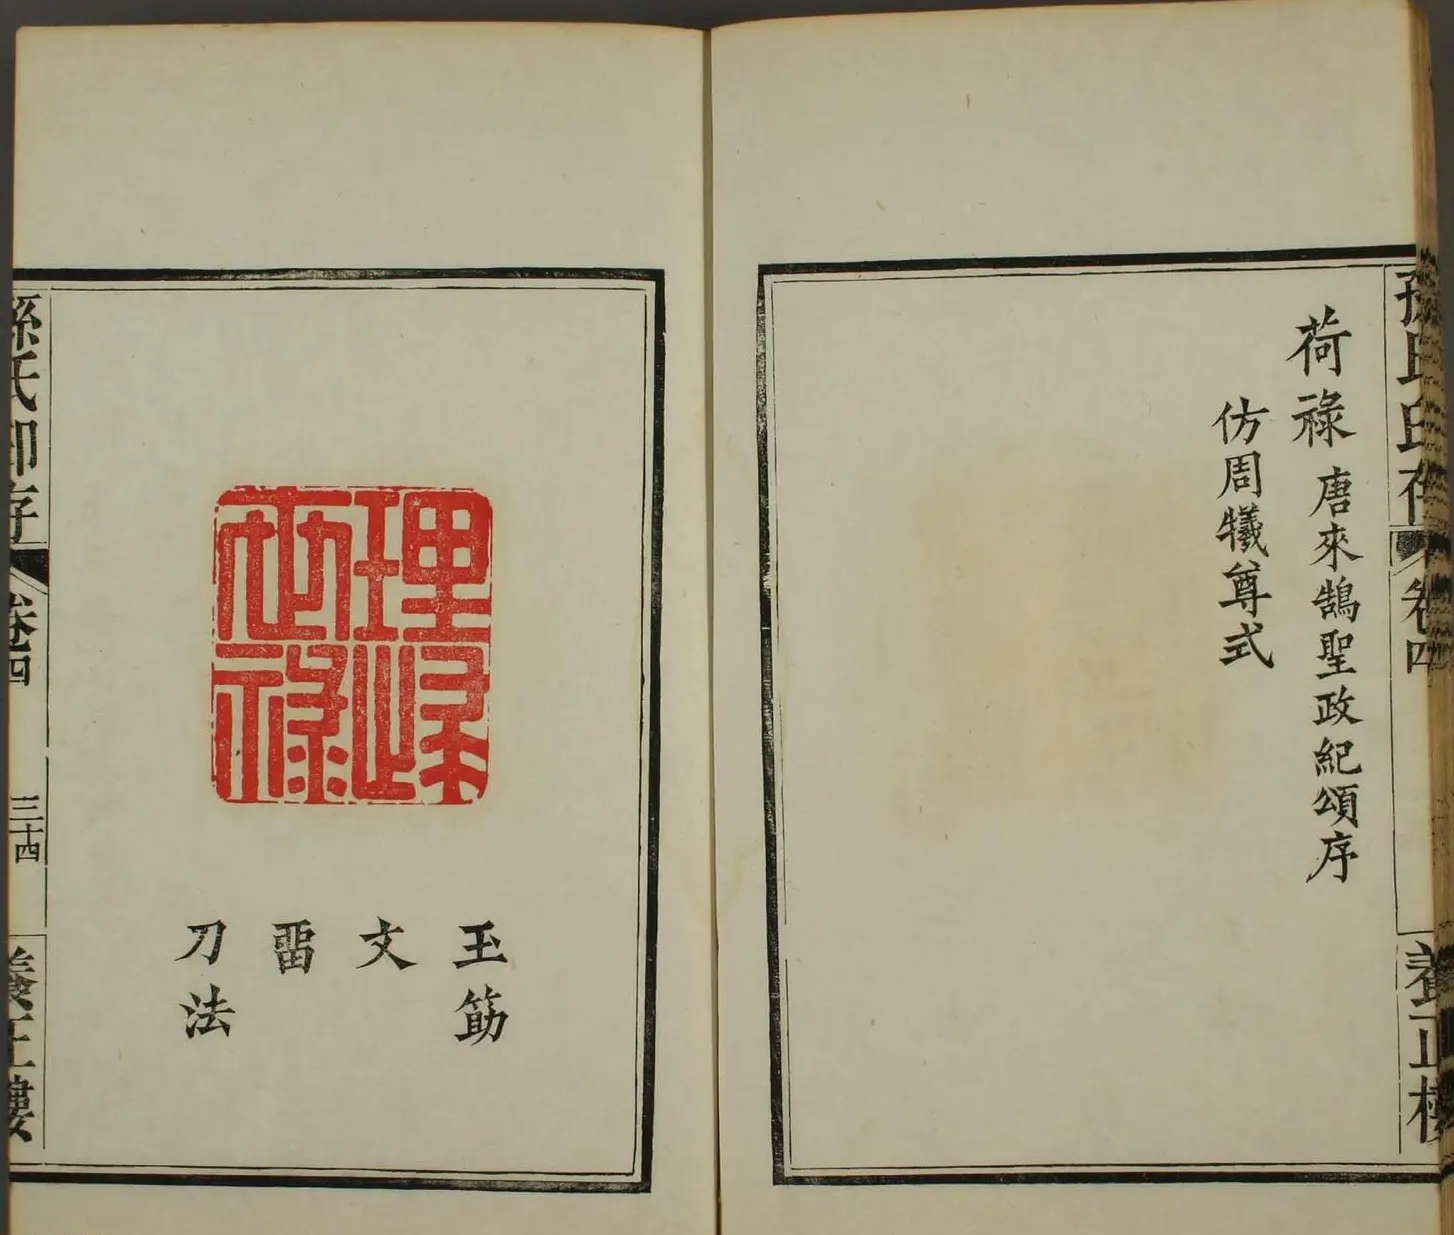 孫氏印存
卷四
養正樓
荷祿 唐來鵠聖政紀頌序
仿周犧尊式
玉筯
文
畱
刀法
孫氏印存
卷四
三十四
養正樓